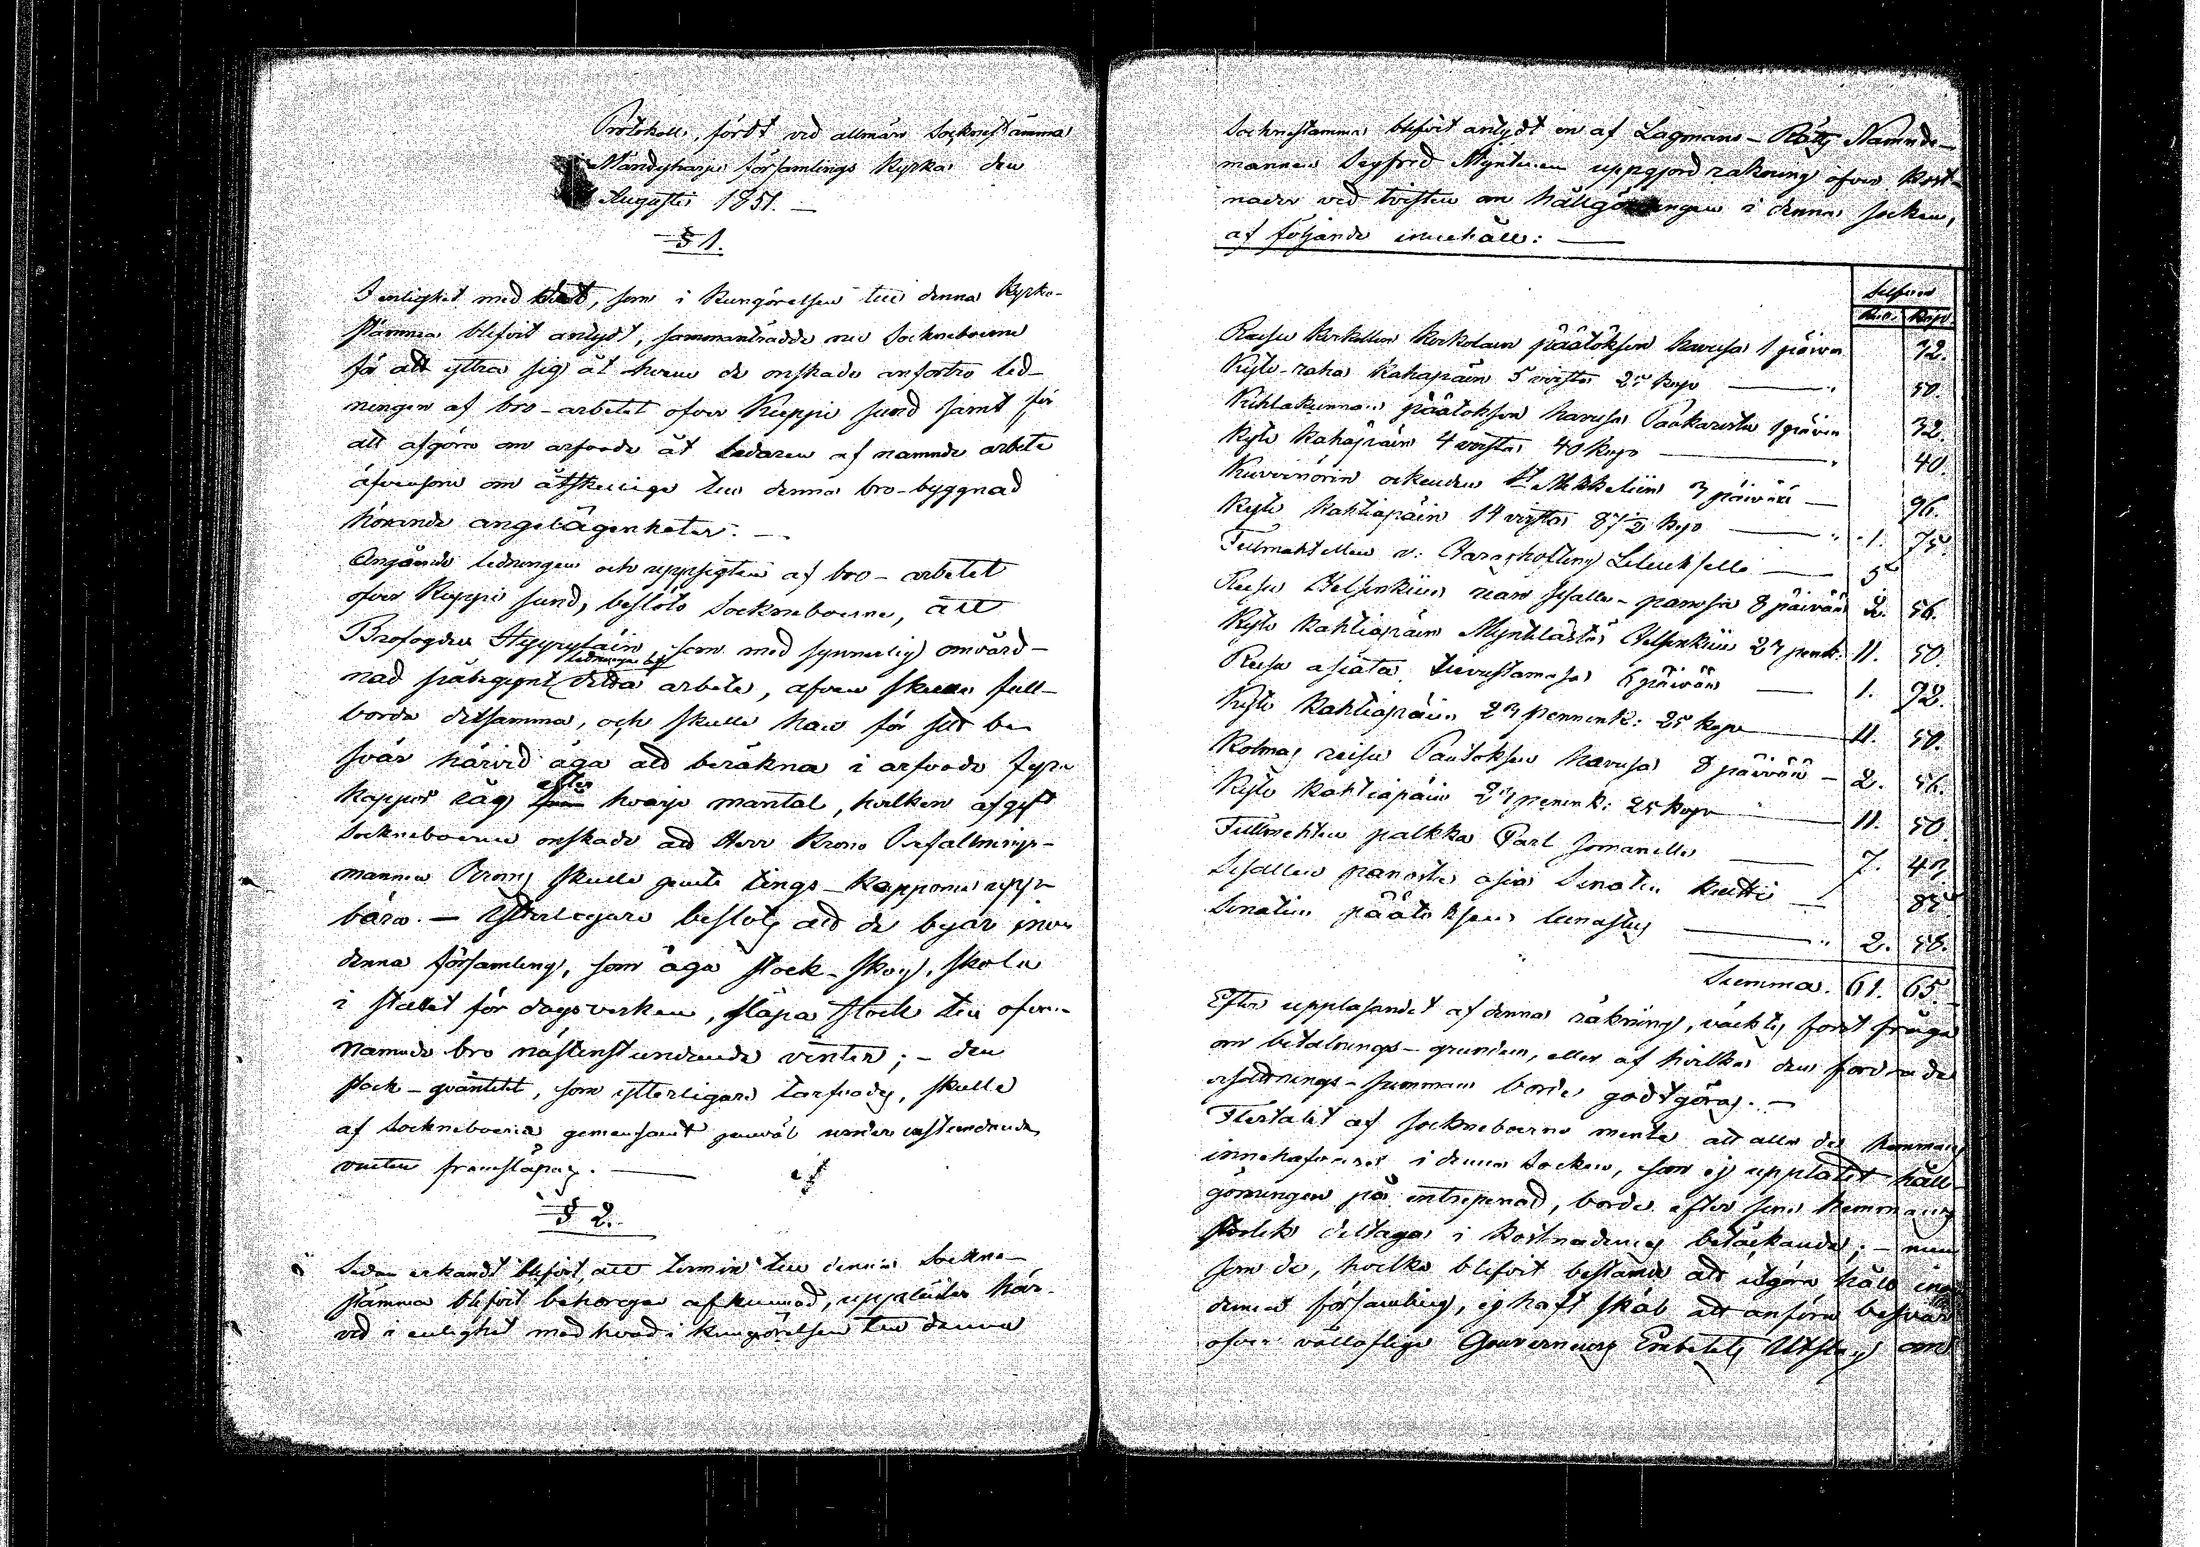 Protokoll, fördt vid allmän Sockneständma
Mändyharju församlings kyrka den
Augusti 1851. —
§ 1.
I enlighet med det, som i Kungörelsen till denna Kyrko-
stämma blifvit antydt, sammanträdde nu Sockneboerne
för att yttra sig åt hvem de önskade anförtro led-
ningen af bro-arbetet öfver Kuppi sund samt för
att afgöra om arfvode åt ledaren af nämnde arbete
äfvensom om åtskilliga till denna bro-byggnad
hörande angelägenheter. —
Angående ledningen och uppsigten af bro-arbetet
öfver Kuppi sund, beslöto Socknеboerne, att
Brofogden som med synnerlig omvård-
nad påbegynt ledningen af detta arbete, äfven skulle full-
borda detsamma, och skulle han för sitt be-
svär härvid äga att beräkna i arfvode fyra
kappor råg efter hvarje mantal, hvilken afgift
Socknеboerne önskade att Herr Krono Befallnings-
mannen skulle genom tings-kapporna upp-
bära. — Ytterligare beslöts att de byar inom
denna församling, som äga stock-skog, skola
i stället för dagsverken, släpa stock till ofvan-
nämnde bro nästinstundande vinter; – den
stock-quantitet, som ytterligare tarfvades, skulle
af Socknеboerna gemensamt under instundande
vinter framsläpas. —
§ 2.
Sedan erkändt blifvit, att termin till denna Sockne-
stämma blifvit behörigen afkunnad, upplästes här-
vid i enlighet med hvad i kungörelsen till denna
Socknestämma blifvit antydt en af Lagmans-Rätts Nämnde-
mannen Segfred Myntinen uppgjord räkning öfver kost-
nader vid tvisten om hållgöringen i denna socken,
af följande innehåll: —
Silfver
Rub. Kop.
Reisu Kerkollen Koskolaen päätöksen havusa 1 päivä 32.
Kyti-raha kahapäin 5 virsta 25 kop — " 50.
Kihlakunnan päätöksen havusa 1 päivä 32.
Kyti kahapäin 4 virsta 40 kop — " 40.
Kuvernörin oikeuden Mikkeliin 3 päivää — 96.
Kyti kahtiapäin 14 virsta 87½ kop — " 1. 75.
Fullmahtillen v: Häradshöfding — 5
Reisu Helsinkiin sisälle-panosa 8 päivää 2. 56.
Kyti kahtiapäin Helsinkiin 23 penik: 11. 50.
Reisu asiata 6 päivää — 1. 92.
Kyti kahtiapäin 23 pennink: 25 kop — 11. 50.
Kolmas reisu Päätöksen havusa 8 päivää — 2. 56.
Kyti kahtiapäin 23 penink: 25 kop — 11. 50
Fullmahtin palkka — 7. 43
Sisällen panosta asia Senatin — 85
Senatin päätöksen lunastus — " 2. 58.
Summa. 61. 65.
Efter uppläsandet af denna räkning, väcktes först fråga
om betalnings-grunden, eller af hvilka den fordrade
ersättnings-summan borde godtgöras. —
Flertalet af Socknеboerne mente att alla de hemmans
innehafvare i denna Socken, som ej upplåtit håll-
göringen på entreprenad, borde efter sina hemmans
storlek deltaga i kostnadernas betäckande; – men
som de, hvilka blifvit bestämde att utgöra håll inom
denna församling, ej haft skäl att anföra besvär
öfver vällofliga Gouverneurs Embetets Utslag om